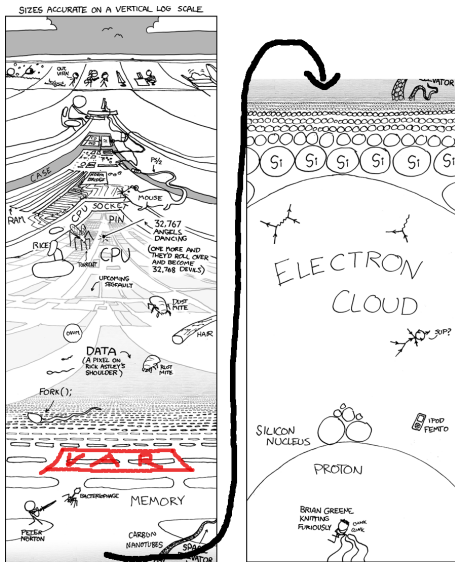 SIZES ACCURATE ON A VERTICAL LOG SCALE
OUT WITH
CASE
PS/2
MOUSE
RAM
CPU SOCKET
PIN
32,767
ANGELS
DANCING
(ONE MORE AND
THEY'D ROLL OVER
AND BECOME
32,768 DEVILS)
RICE
CPU
TORRENT
UPCOMING
SEGFAULT
DUST
MITE
OVUM
HAIR
DATA
(A PIXEL ON
RICK ASTLEY'S
SHOULDER)
DUST
MITE
FORK();
VAR
BACTERIOPHAGE
MEMORY
PETER
NORTON
CARBON
NANOTUBES
SPACE
VATOR
VATOR
Si Si Si Si Si
ELECTRON
CLOUD
SUP?
IPOD
FEMTO
SILICON
NUCLEUS
PROTON
BRIAN GREENE
KNITTING
FURIOUSLY